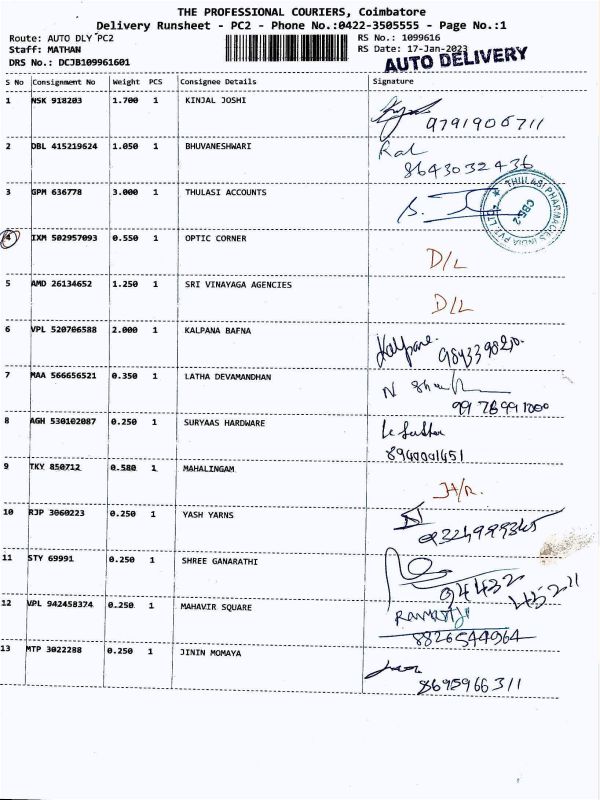 THE PROFESSIONAL COURIERS, Coimbatore
Delivery Runsheet - PC2 - Phone No.:0422-3505555 - Page No.:1
Route: AUTO DLY PC2 RS No.: 1099616
Staff: MATHAN RS Date: 17-Jan-2023
AUTO DELIVERY
DRS No.: DCJB109961601
S No Consignment No Weight PCS Consignee Details Signature
1 NSK 918203 1.700 1 KINJAL JOSHI
9791906711
2 DBL 415219624 1.050 1 BHUVANESHWARI
8643032436
3 GPM 636778 3.000 1 THULASI ACCOUNTS
THULASI PHARMACIES INDIA PVT LTD
CBE-2
4 IXM 502957093 0.550 1 OPTIC CORNER
D/L
5 AMD 26134652 1.250 1 SRI VINAYAGA AGENCIES
D/L
6 VPL 520706588 2.000 1 KALPANA BAFNA
Kalpana
7 MAA 566656521 0.350 1 LATHA DEVAMANDHAN
8 AGH 530102087 0.250 1 SURYAAS HARDWARE
8940001451
9 TKY 850712 0.580 1 MAHALINGAM
10 RJP 3060223 0.250 1 YASH YARNS
11 STY 69991 0.250 1 SHREE GANARATHI
94432
45211
12 VPL 942458374 0.250 1 MAHAVIR SQUARE
8826544964
13 MTP 3022288 0.250 1 JININ MOMAYA
8695966311